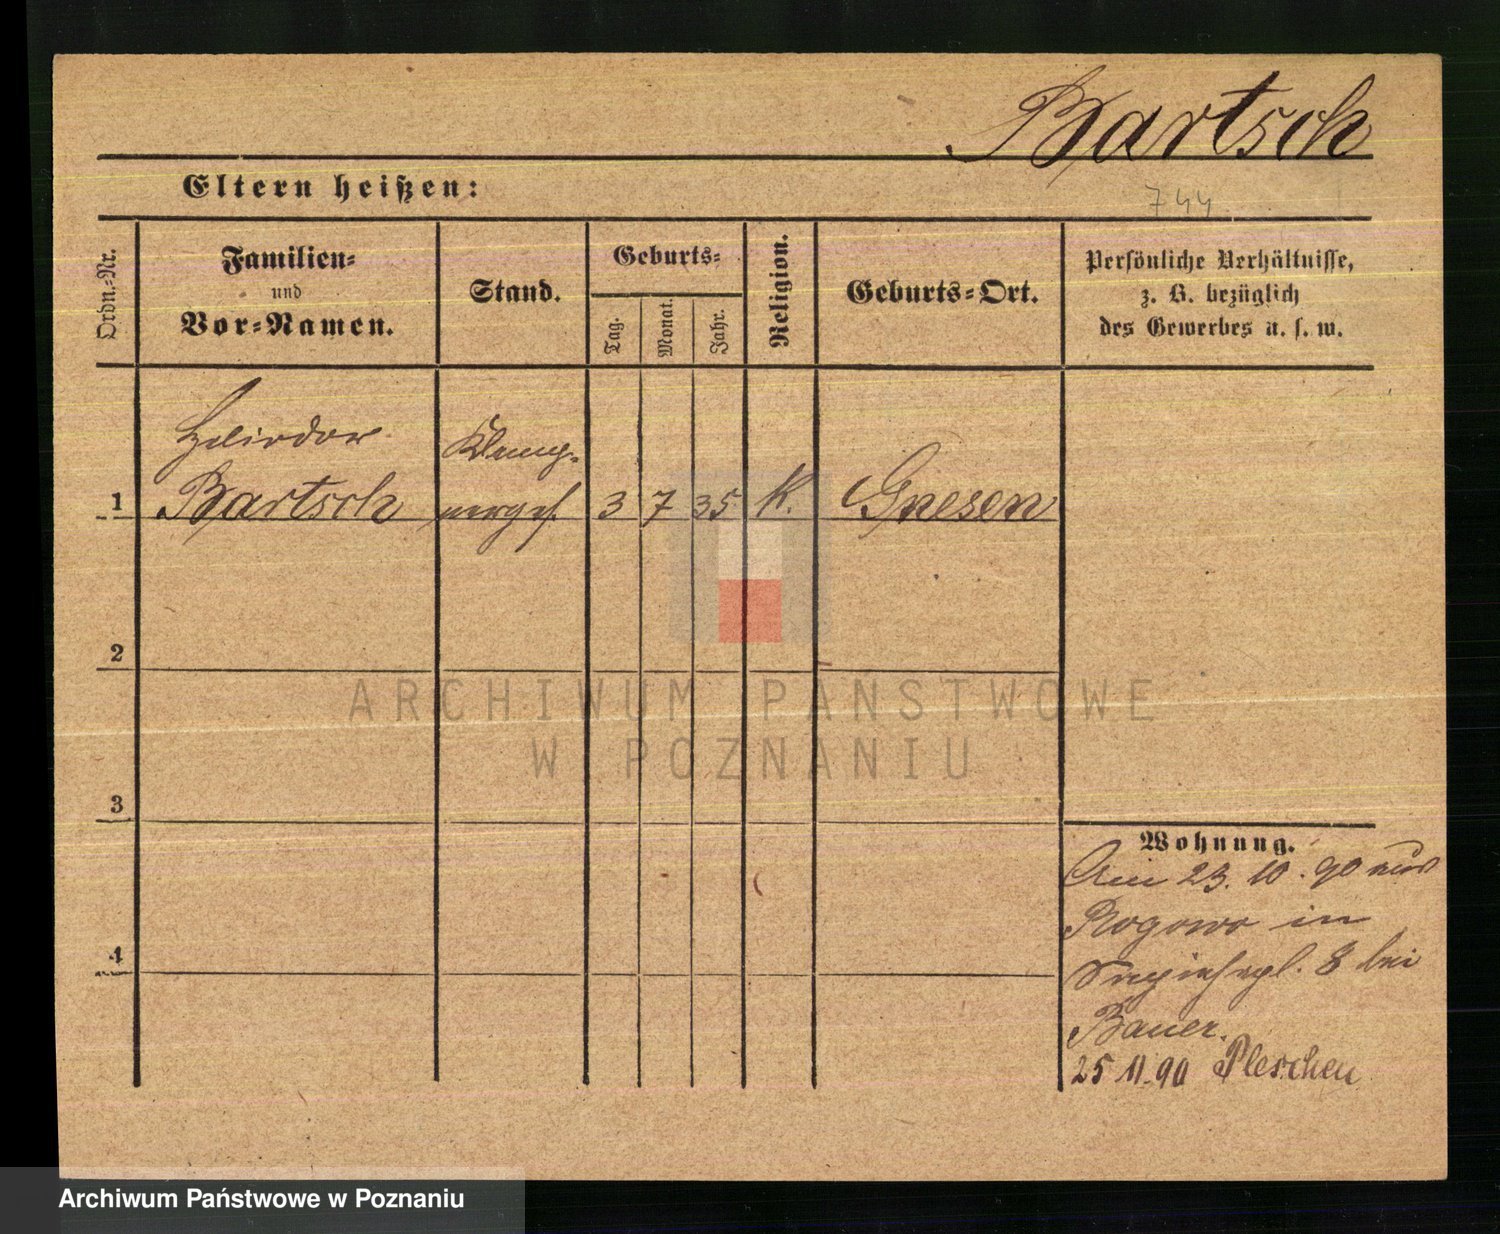 Bartsch
Eltern heißen:
744
Ordn.-Nr.
Familien-
und
Vor-Namen.
Stand.
Geburts-
Tag.
Monat.
Jahr.
Religion.
Geburts-Ort.
Persönliche Verhältnisse,
z. B. bezüglich
des Gewerbes u. s. w.
Heliodor
Klemp-
1
Bartsch
nerges.
3
7
35
K.
Gnesen
2
ARCHIWUM PAŃSTWOWE
W POZNANIU
3
Wohnung.
Am 23.10.90 aus
Rogowo in
8 bei
4
Bauer.
25 11.90 Pleschen
Archiwum Państwowe w Poznaniu